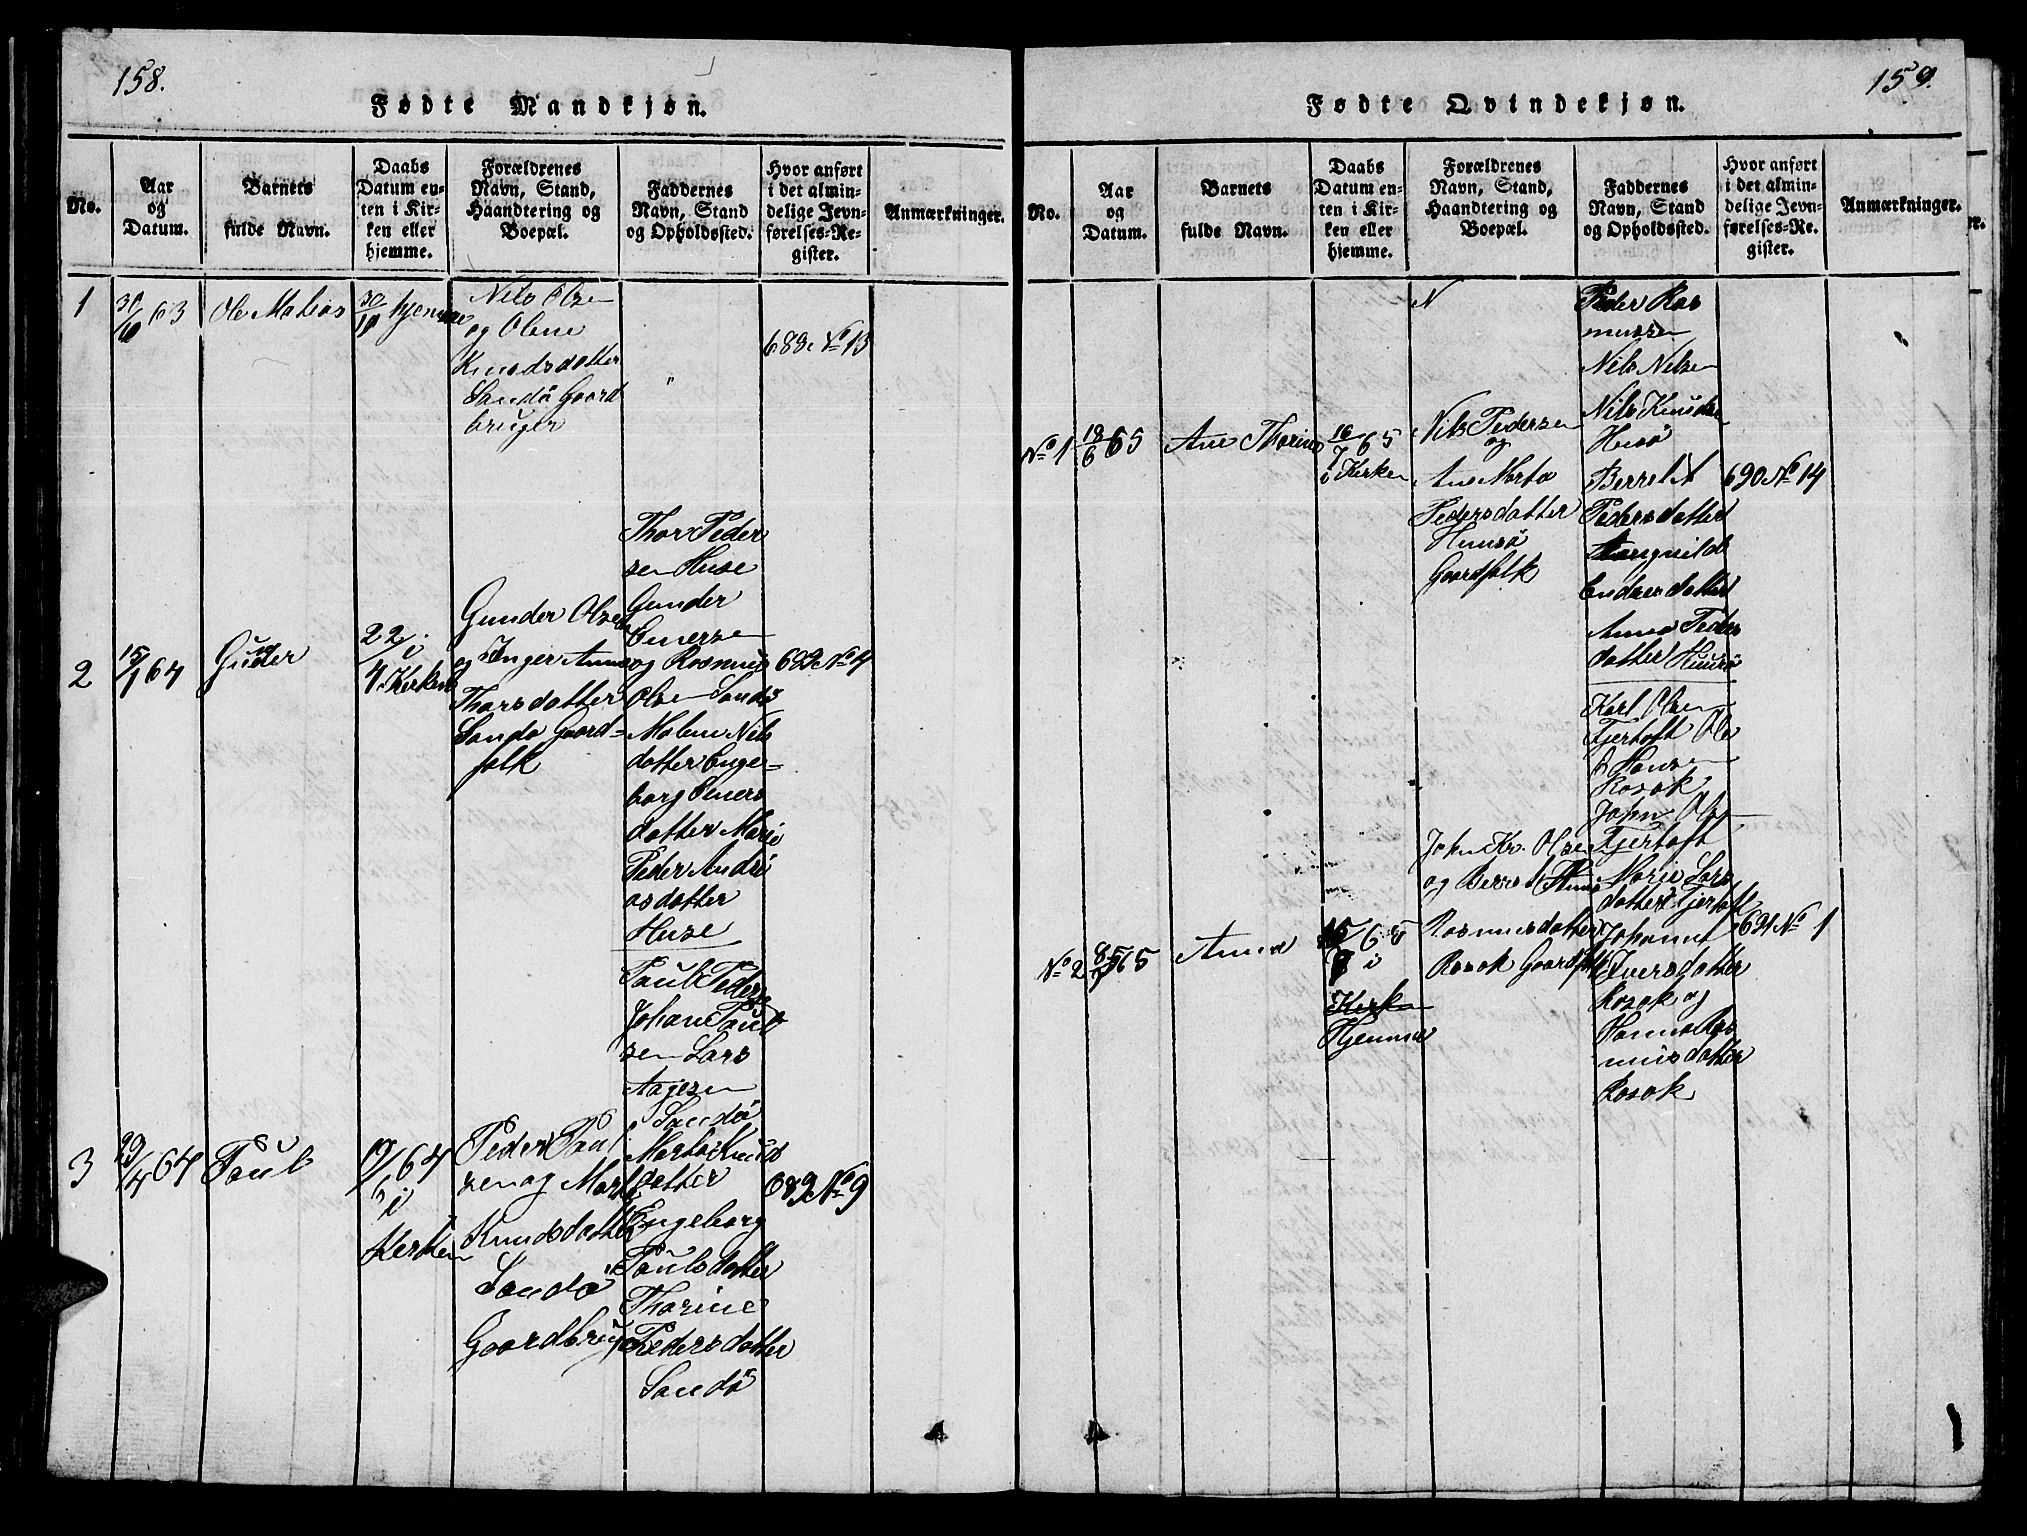 158.
Fødte Mandkjøn.
No.
Aar
og
Datum.
Barnets
fulde Navn.
Daabs
Datum en-
ten i Kir-
ken eller
hjemme.
Forældrenes
Navn, Stand,
Haandtering og
Boepæl.
Faddernes
Navn, Stand
og Opholdssted.
Hvor anført
i det almin-
delige Jevn-
førelses-Re-
gister.
Anmærkninger.
1
Ole Matias
hjemme
Nils Olsen
og Olene
Knudsdatter
Sandø Gaard
bruger
"
688. No 13
2
15/1 64
Gunder
22/4 i
Kirken
Gunder Olsen
og Inger Anna
Thorsdatter
Sandø Gaard-
folk
Thor Peder
sen Huse
Gunder
Enersen
og Rasmus
Olsen Sandø
Malene Nils
datter Enge-
borg Eners
datter Marie
Peder Andre
asdatter
Huse
692 No 4
3
29/4 64
Paul
64
i
Kirken
Peder Paul
sen og Marta
Knudsdatter
Sandø
Gaardbruger
Paul Peders
Johan Paul
sen Lars
Aagesen
Sandø
Marta Knuds
datter
Engeborg
Paulsdatter
Thorine
Pedersdatter
Sandø
689 No 9
159.
Fødte Qvindekjøn.
No.
Aar
og
Datum.
Barnets
fulde Navn.
Daabs
Datum en-
ten i Kir-
ken eller
hjemme.
Forældrenes
Navn, Stand,
Haandtering og
Boepæl.
Faddernes
Navn, Stand
og Opholdssted.
Hvor anført
i det almin-
delige Jevn-
førelses-Re-
gister.
Anmærkninger.
N
No 1
18/6 65
Ane Thorine
16/7 65
i Kirken
Nils Pedersen
og
Ane Marta
Pedersdatter
Huusø
Gaardfolk
Peder Ras
mussen
Nils Nilsen
Nils Knudsen
Husø
Berret A
Pedersdatter
Endresdatter
Anna Peders
datter Huusø
690 No 14
No 2
65
Anna
15
i
Kirken
Hjemme
John Kr. Olsen
og Berret Anna
Rasmusdatter
Rosok Gaardfolk
Karl Olsen
Fjertoft Ole
Hansen
Rosok
John Olsen
Fjertoft
Marie Lars
datter Fjertoft
Johanna
Iversdatter
Rosok og
Hanna Ras
musdatter
Rosok
691 No 1